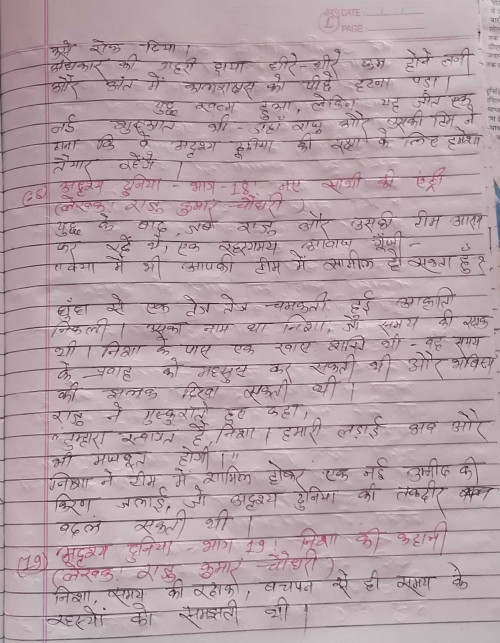 DATE
PAGE
उसे रोक दिया।
अंधकार की गहरी छाया धीरे-धीरे कम होने लगी
और अंत में कालराक्षस को पीछे हटना पड़ा।
युद्ध खत्म हुआ, लेकिन यह जीत एक
नई शुरुआत थी - जहाँ राजू और उसकी टीम ने
ठाना कि वे अदृश्य दुनिया की रक्षा के लिए हमेशा
तैयार रहेंगे।
(18) अदृश्य दुनिया - भाग - 18, नए साथी की एंट्री
(लेखक राजू कुमार चौधरी)
युद्ध के बाद, जब राजू और उसकी टीम आराम
कर रहे थे, एक रहस्यमय आवाज गूँजी -
"क्या मैं भी आपकी टीम में सामील हो सकता हुँ?
धुँध से एक तेज तेज चमकती हुई आकृति
निकली। उसका नाम था निशा, जो समय की रक्षक
थी। निशा के पास एक खास शक्ति थी - वह समय
के प्रवाह को महसूस कर सकती थी और भविष्य
की झलक दिखा सकती थी।
राजू ने मुस्कुराते हुए कहा,
"तुम्हारा स्वागत है, निशा। हमारी लड़ाई अब और
भी मजबूत होगी।"
निशा ने टीम में शामिल होकर एक नई उम्मीद की
किरण जलाई, जो अदृश्य दुनिया की तकदीर
बदल सकती थी।
(19) अदृश्य दुनिया - भाग 19: निशा की कहानी
(लेखक राजू कुमार चौधरी)
निशा, समय की रक्षक, बचपन से ही समय के
रहस्यों को समझती थी।